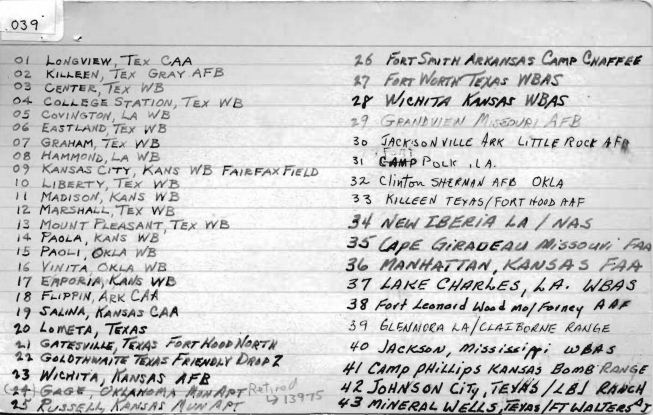 .039
01 LONGVIEW, TEX CAA
02 KILLEEN, TEX GRAY AFB
03 CENTER, TEX WB
04 COLLEGE STATION, TEX WB
05 COVINGTON, LA WB
06 EASTLAND, TEX WB
07 GRAHAM, TEX WB
08 HAMMOND, LA WB
09 KANSAS CITY, KANS WB FAIRFAX FIELD
10 LIBERTY, TEX WB
11 MADISON, KANS WB
12 MARSHALL, TEX WB
13 MOUNT PLEASANT, TEX WB
14 PAOLA, KANS WB
15 PAOLI, OKLA WB
16 VINITA, OKLA WB
17 EMPORIA, KANS WB
18 FLIPPIN, ARK CAA
19 SALINA, KANSAS CAA
20 LOMETA, TEXAS
21 GATESVILLE, TEXAS FORT HOOD NORTH
22 GOLDTHWAITE TEXAS FRIENDLY DROP Z
23 WICHITA, KANSAS AFB
(24) GAGE, OKLAHOMA MUN APT Retired → 13975
25 RUSSELL, KANSAS MUN APT
26 FORT SMITH ARKANSAS CAMP CHAFFEE
27 FORT WORTH TEXAS WBAS
28 WICHITA KANSAS WBAS
29 GRANDVIEW MISSOURI AFB
30 JACKSONVILLE ARK LITTLE ROCK AFB
31 FORT CAMP POLK, LA.
32 Clinton SHERMAN AFB OKLA
33 KILLEEN TEXAS/FORT HOOD AAF
34 NEW IBERIA LA / NAS
35 CAPE GIRADEAU MISSOURI FAA
36 MANHATTAN, KANSAS FAA
37 LAKE CHARLES, LA. WBAS
38 Fort Leonard Wood Mo/Forney AAF
39 GLENMORA LA/CLAIBORNE RANGE
40 JACKSON, Mississippi WBAS
41 CAMP PHILLIPS KANSAS BOMB RANGE
42 JOHNSON CITY, TEXAS / LBJ RANCH
43 MINERAL WELLS, TEXAS/FT WALTERS